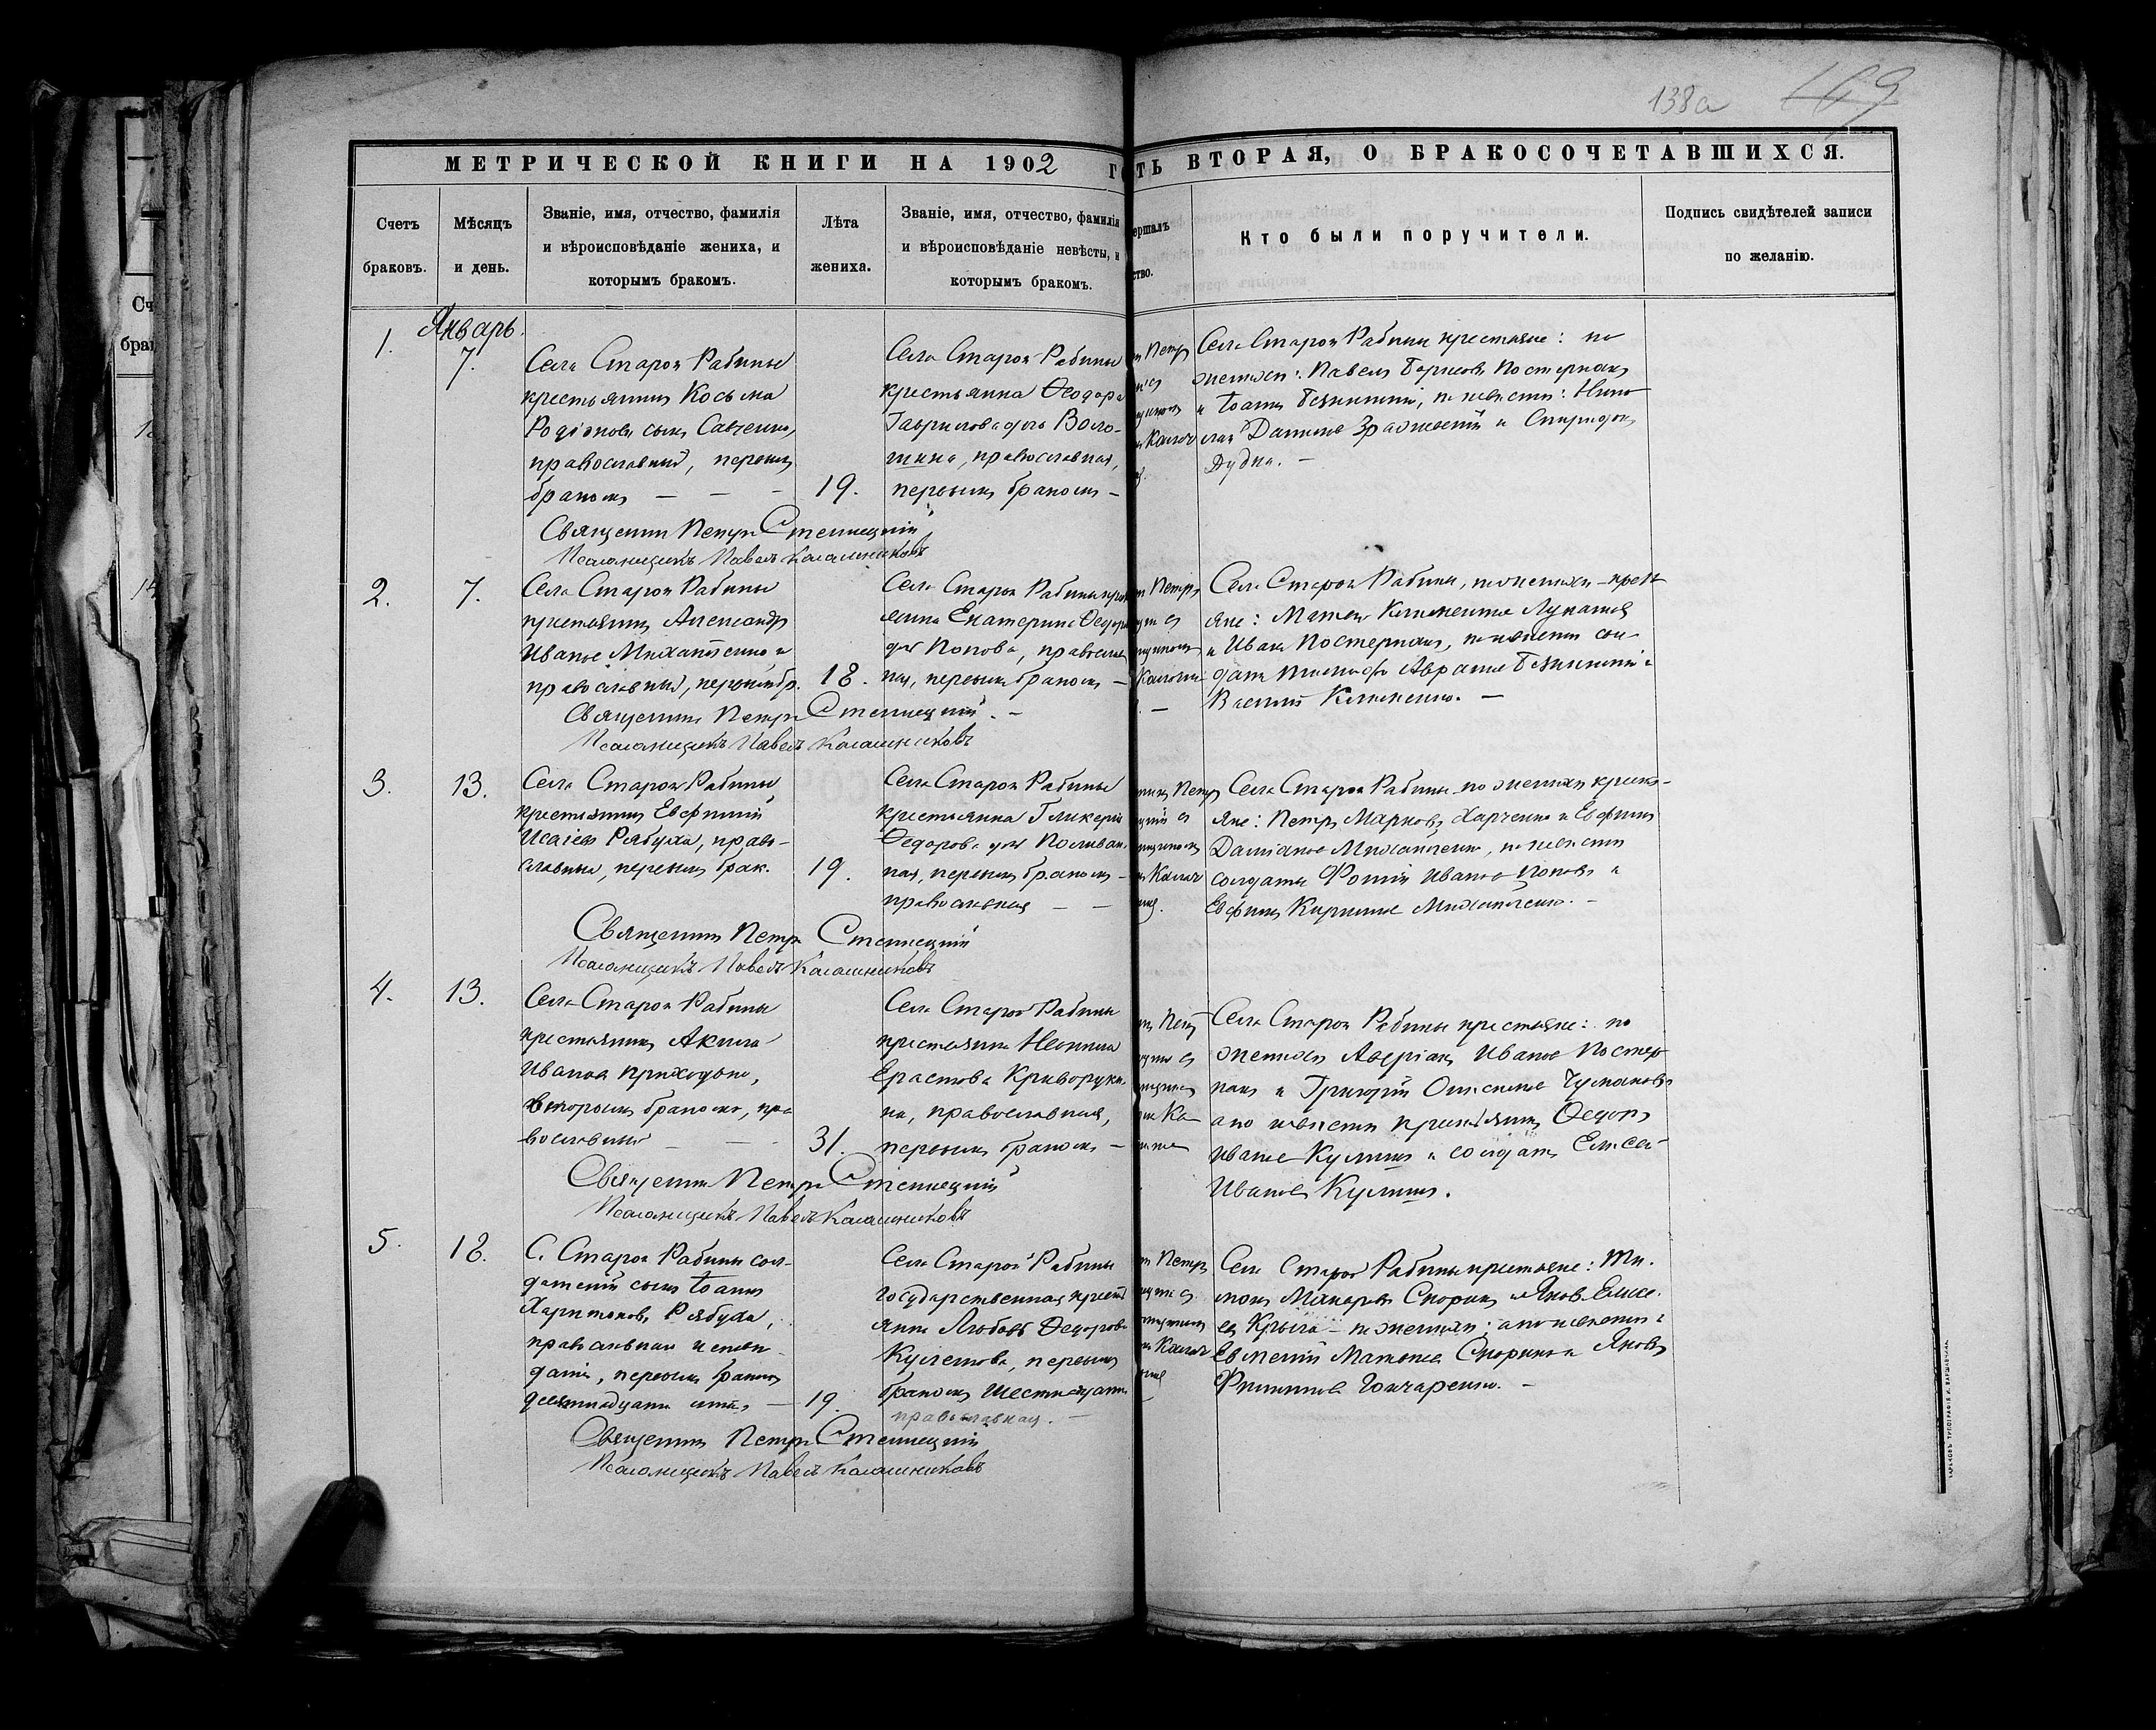 138а 169
МЕТРИЧЕСКОЙ КНИГИ НА 1902 Г
ТЬ ВТОРАЯ, О БРАКОСОЧЕТАВШИХСЯ.
Счетъ
браковъ.
Мѣсяцъ
и день.
Званіе, имя, отчество, фамилія
и вѣроисповѣданіе жениха, и
которымъ бракомъ.
Лѣта
жениха.
Званіе, имя, отчество, фамилія
и вѣроисповѣданіе невѣсты, и
которымъ бракомъ.
ершалъ
ство.
Кто были поручители.
Подпись свидѣтелей записи
по желанію.
Январь.
1.
7.
Села Старой Рабины
крестьянинъ Косьма
Родіоновъ сынъ Савченко,
православный, первымъ
бракомъ — — —
19.
Села Старой Рабины
крестьянка Ѳеодора
Гаврилова дочь Воло-
шина, православная,
первымъ бракомъ —
Села Старой Рабины крестьяне: по
женихѣ: Павелъ Борисовъ Постернакъ
и Іоаннъ, по невѣстѣ: Нико
лай Даниловъ и Спиридонъ
Дудка. —
Священникъ Петръ Стеллецкій
Псаломщикъ Павелъ Калашниковъ
2.
7.
Села Старой Рабины
крестьянинъ Александръ
Ивановъ Михайленко
православный, первымъ бр.
18.
Села Старой Рабины крес
янка Екатерина Ѳедоро
дочь Попова, православ
ная, первымъ бракомъ —
Села Старой Рабины, по женихѣ — крест
яне:
и Иванъ Постернакъ, по невѣстѣ сол
Василій Клименко. —
Священникъ Петръ Стеллецкій. —
Псаломщикъ Павелъ Калашниковъ
3.
13.
Села Старой Рабины
крестьянинъ Евфимій
Исаіевъ Рябуха, право-
славный, первымъ брак.
19.
Села Старой Рабины
крестьянка Гликерія
Ѳедорова дочь Поливан
ная, первымъ бракомъ —
православная — —
Села Старой Рабины по женихѣ крест-
яне: Петръ Марковъ Харченко и Евфимъ
Даміановъ, по невѣстѣ
солдаты Фотій Ивановъ Поповъ и
Евфимъ Кирилловъ
Священникъ Петръ Стеллецкій
Псаломщикъ Павелъ Калашниковъ
4.
13.
Села Старой Рабины
крестьянинъ Акила
Ивановъ Приходько,
вторымъ бракомъ, пра
вославный — —
31.
Села Старой Рабины
крестьянка Неонила
Ерастова Криворучки
на, православная,
первымъ бракомъ —
Села Старой Рабины крестьяне: по
женихѣ Аверіанъ Ивановъ Постер
накъ и Григорій Чумаковъ
а по невѣстѣ крестьянинъ Ѳедоръ
Ивановъ Кулишъ и солдатъ Елисей
Ивановъ Кулишъ.
Священникъ Петръ Стеллецкій
Псаломщикъ Павелъ Калашниковъ
5.
18.
С. Старой Рабины сол-
датскій сынъ Іоаннъ
Харитоновъ Рябуха,
православнаго исповѣ
данія, первымъ бракомъ
девятнадцати лѣтъ —
19.
Села Старой Рабины
государственная крест
янка Любовь Ѳедорова
первымъ
бракомъ шестнадцати
православная. —
Села Старой Рабины крестьяне: Ти-
Макаровъ Скорикъ и Яковъ Елисе
евъ Крыга — по женихѣ; а по невѣстѣ:
Евгеній Скорикъ и Яковъ
Филипповъ Гончаренко. —
Священникъ Петръ Стеллецкій
Псаломщикъ Павелъ Калашниковъ